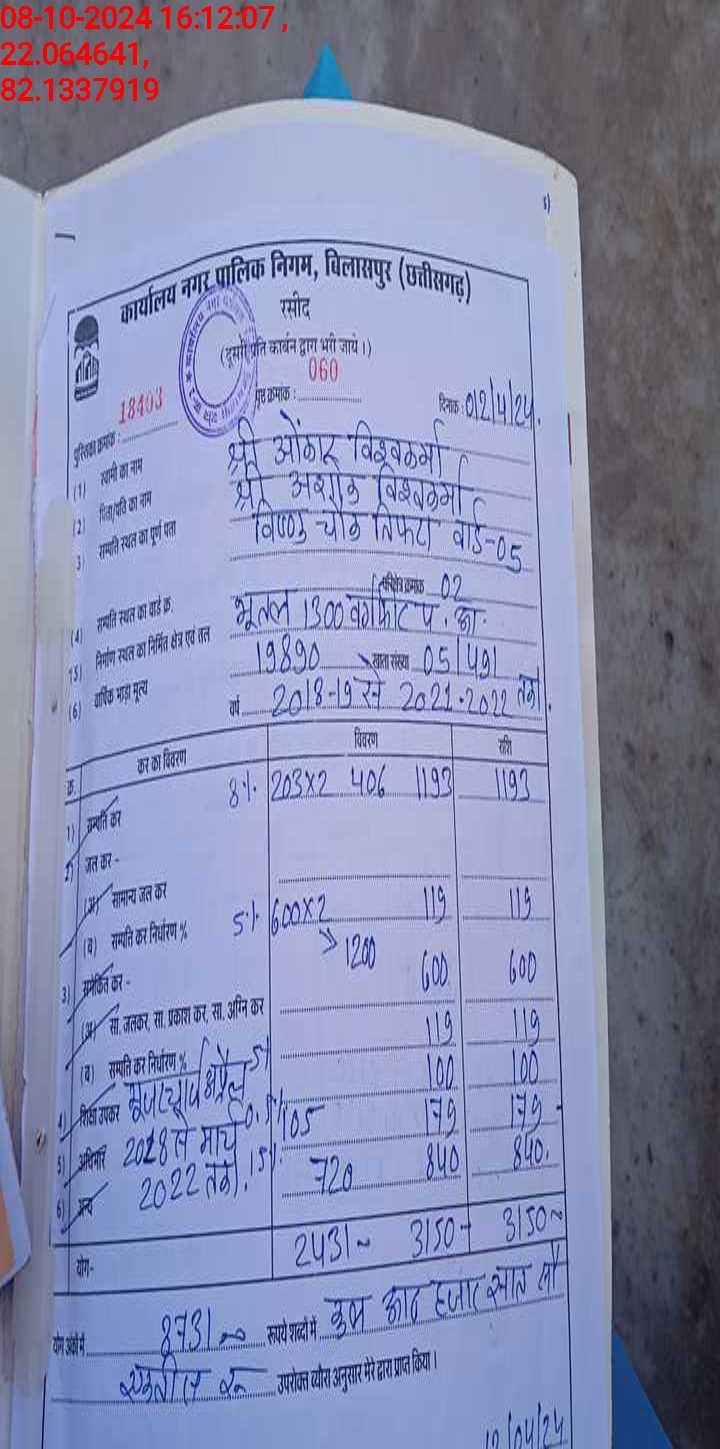 08-10-2024 16:12:07 ,
22.064641,
82.1337919
कार्यालय नगर पालिक निगम, बिलासपुर (छत्तीसगढ़)
रसीद
(दूसरी प्रति कार्बन द्वारा भरी जाये।)
पुस्तिका क्रमांक : 18403 पृष्ठ क्रमांक : 060 दिनांक : 012/4/24
(1) स्वामी का नाम श्री ओंकार विश्वकर्मा
(2) पिता/पति का नाम श्री अशोक विश्वकर्मा
3) सम्पति स्थल का पूर्ण पता विष्णु चौक तिफरा वार्ड-05
(4) सम्पति स्थल का वार्ड क्र. परिक्षेत्र क्रमांक 02
(5) निर्माण स्थल का निर्मित क्षेत्र एवं तल भूतल 1300 वर्गफिट प. आ.
(6) वार्षिक भाड़ा मूल्य 19890 खाता संख्या 05/491
वर्ष 2018-19 से 2021-2022 तक।
क्र. कर का विवरण विवरण राशि
1) सम्पति कर 8% 203x2 406 1193 1193
2) जल कर -
(अ) सामान्य जल कर
(ब) सम्पति कर निर्धारण % 5% 600x2 119 119
→ 1200
3) समेकित कर - 600 600
(अ) सा. जलकर, सा. प्रकाश कर, सा. अग्नि कर
(ब) सम्पति कर निर्धारण % 5% 119 119
4) शिक्षा उपकर अप्रैल 100 100
5) अधिभार 2018 से मार्च 0.5% 105 179 179
6) अन्य 2022 तक। 15% 720 840 840
योग- 2431 3150 3150
योग अंकों में 8731 रूपये शब्दों में कुल आठ हजार सात सौ
एकतीस रू उपरोक्त ब्यौरा अनुसार मेरे द्वारा प्राप्त किया।
12/04/24